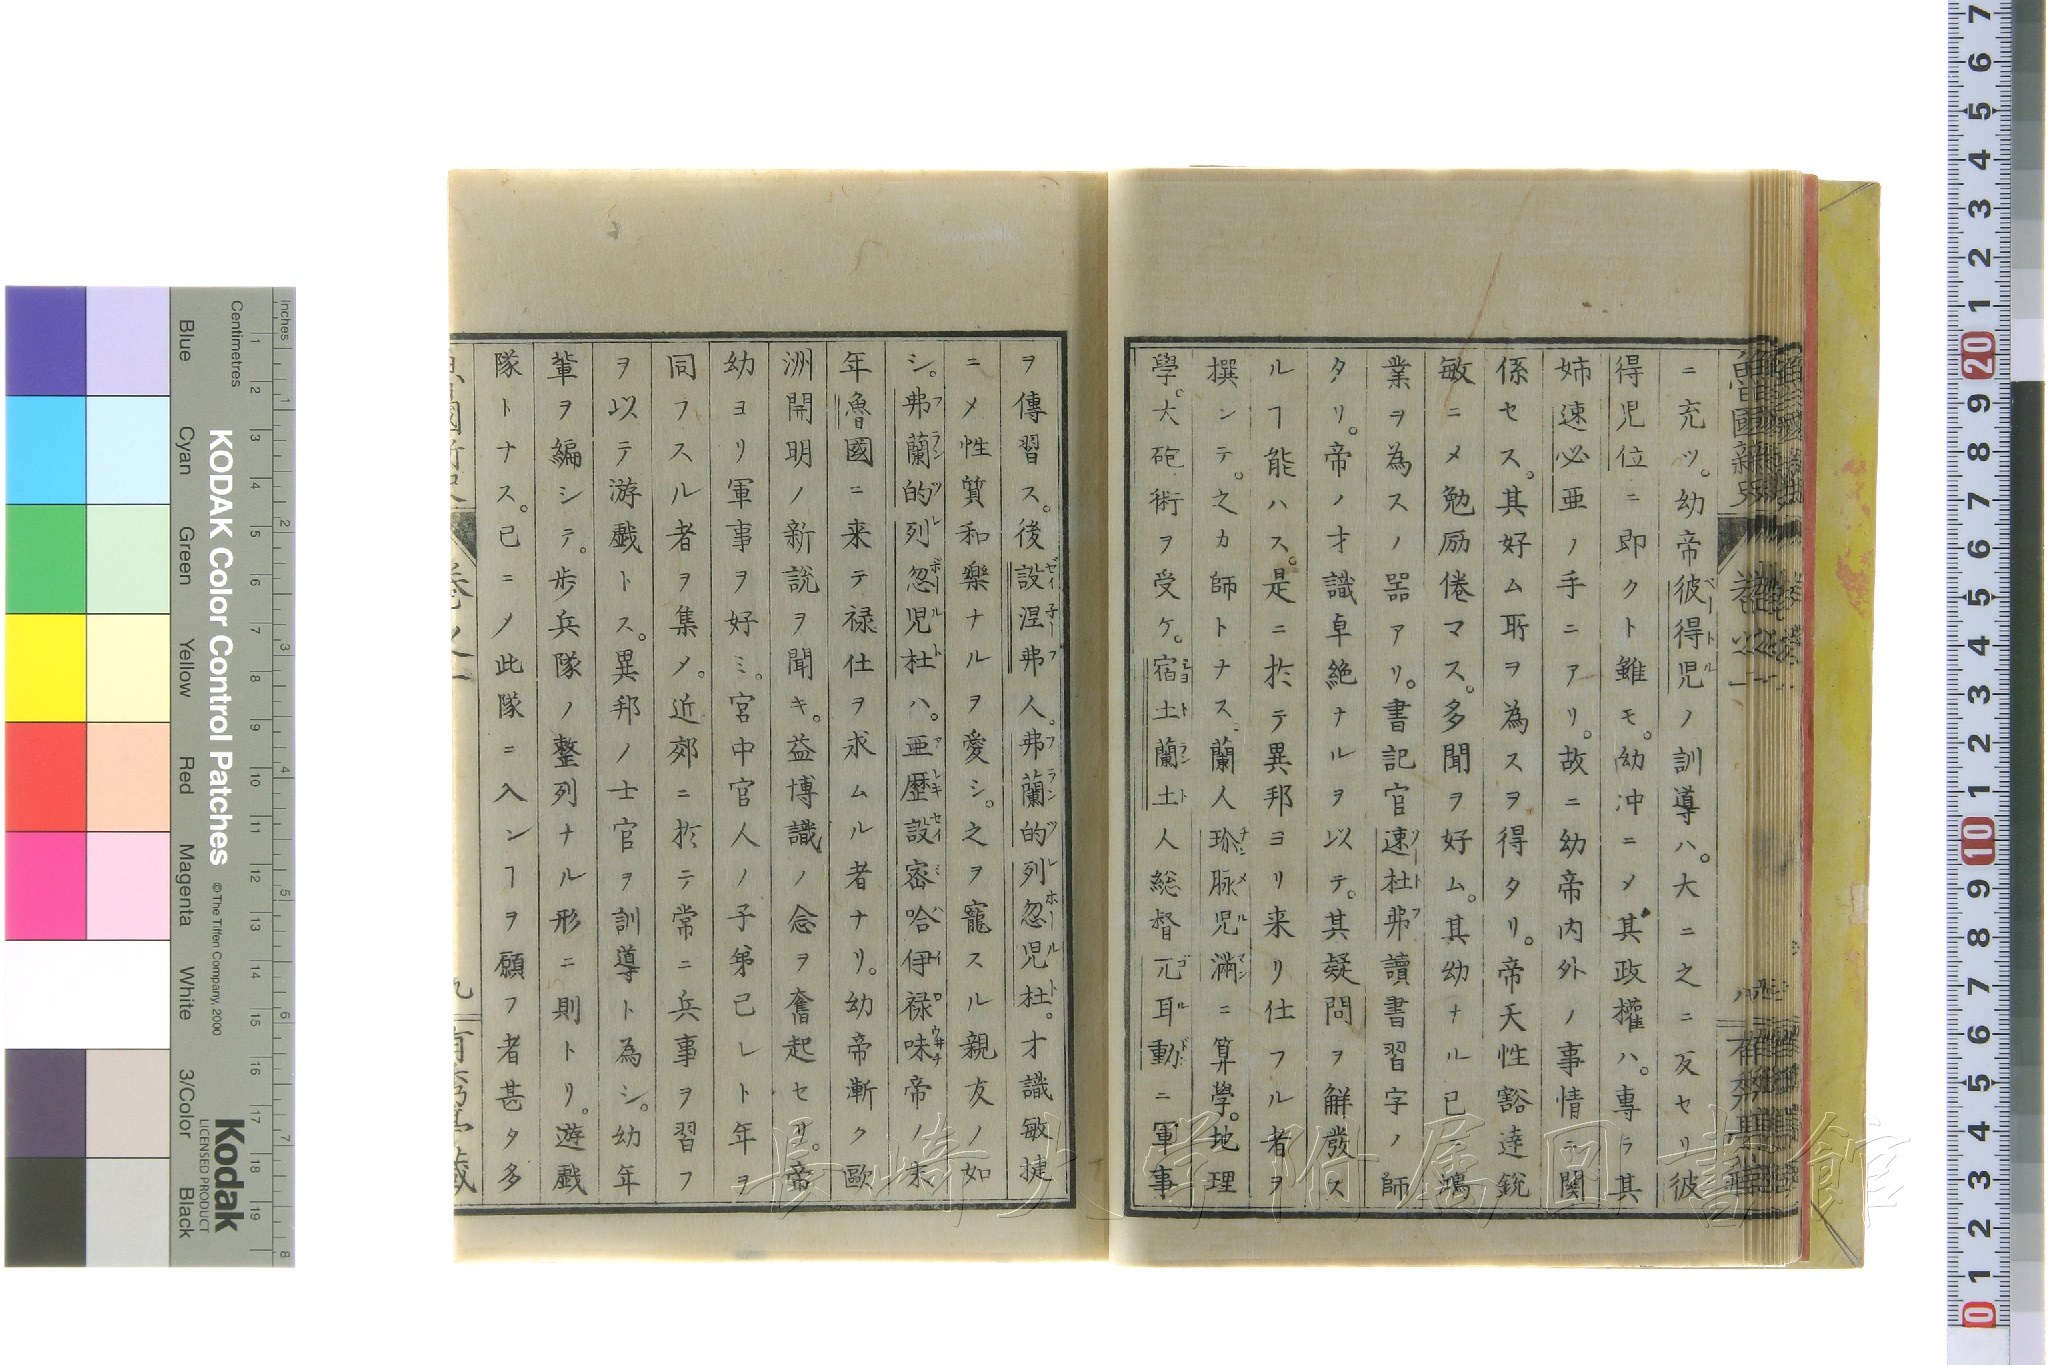 ニ充ツ。幼帝彼得児ノ訓導ハ。大ニ之ニ反セリ彼
得児位ニ即クト雖モ。幼冲ニメ其政權ハ。專ラ其
姉速必亜ノ手ニアリ。故ニ幼帝内外ノ事情ニ関
係セス。其好ム所ヲ為スヲ得タリ。帝天性豁達銳
敏ニメ勉励倦マス。多聞ヲ好ム。其幼ナルヒニ鴻
業ヲ為スノ器アリ。書記官速杜弗讀書習字ノ師
タリ。帝ノ才識卓絶ナルヲ以テ。其疑問ヲ解發ス
ルヿ能ハス。是ニ於テ異邦ヨリ来リ仕フル者ヲ
撰ンテ。之カ師トナス。蘭人珎脉児滿ニ算學。地理
學。大砲術ヲ受ケ。宿土蘭土人総督兀耳動ニ軍事
ヲ傳習ス。後設涅弗人。弗蘭的列忽児杜。才識敏捷
ニメ性質和樂ナルヲ愛シ。之ヲ寵スル親友ノ如
シ。弗蘭的列忽児杜ハ。亜歴設密哈伊禄味帝ノ末
年魯國ニ来テ禄仕ヲ求ムル者ナリ。幼帝漸ク歐
洲開明ノ新説ヲ聞キ。益博識ノ念ヲ奮起セリ。帝
幼ヨリ軍事ヲ好ミ。宮中官人ノ子弟己レト年ヲ
同フスル者ヲ集メ。近郊ニ於テ常ニ兵事ヲ習フ
ヲ以テ游戯トス。異邦ノ士官ヲ訓導ト為シ。幼年
軰ヲ編シテ。歩兵隊ノ整列ナル形ニ則トリ。遊戯
隊トナス。已ニノ此隊ニ入ンヿヲ願フ者甚タ多
長崎大学附属図書館
KODAK Color Control Patches
© The Tiffen Company, 2000
Kodak
LICENSED PRODUCT
Inches
Centimetres
Blue
Cyan
Green
Yellow
Red
Magenta
White
3/Color
Black